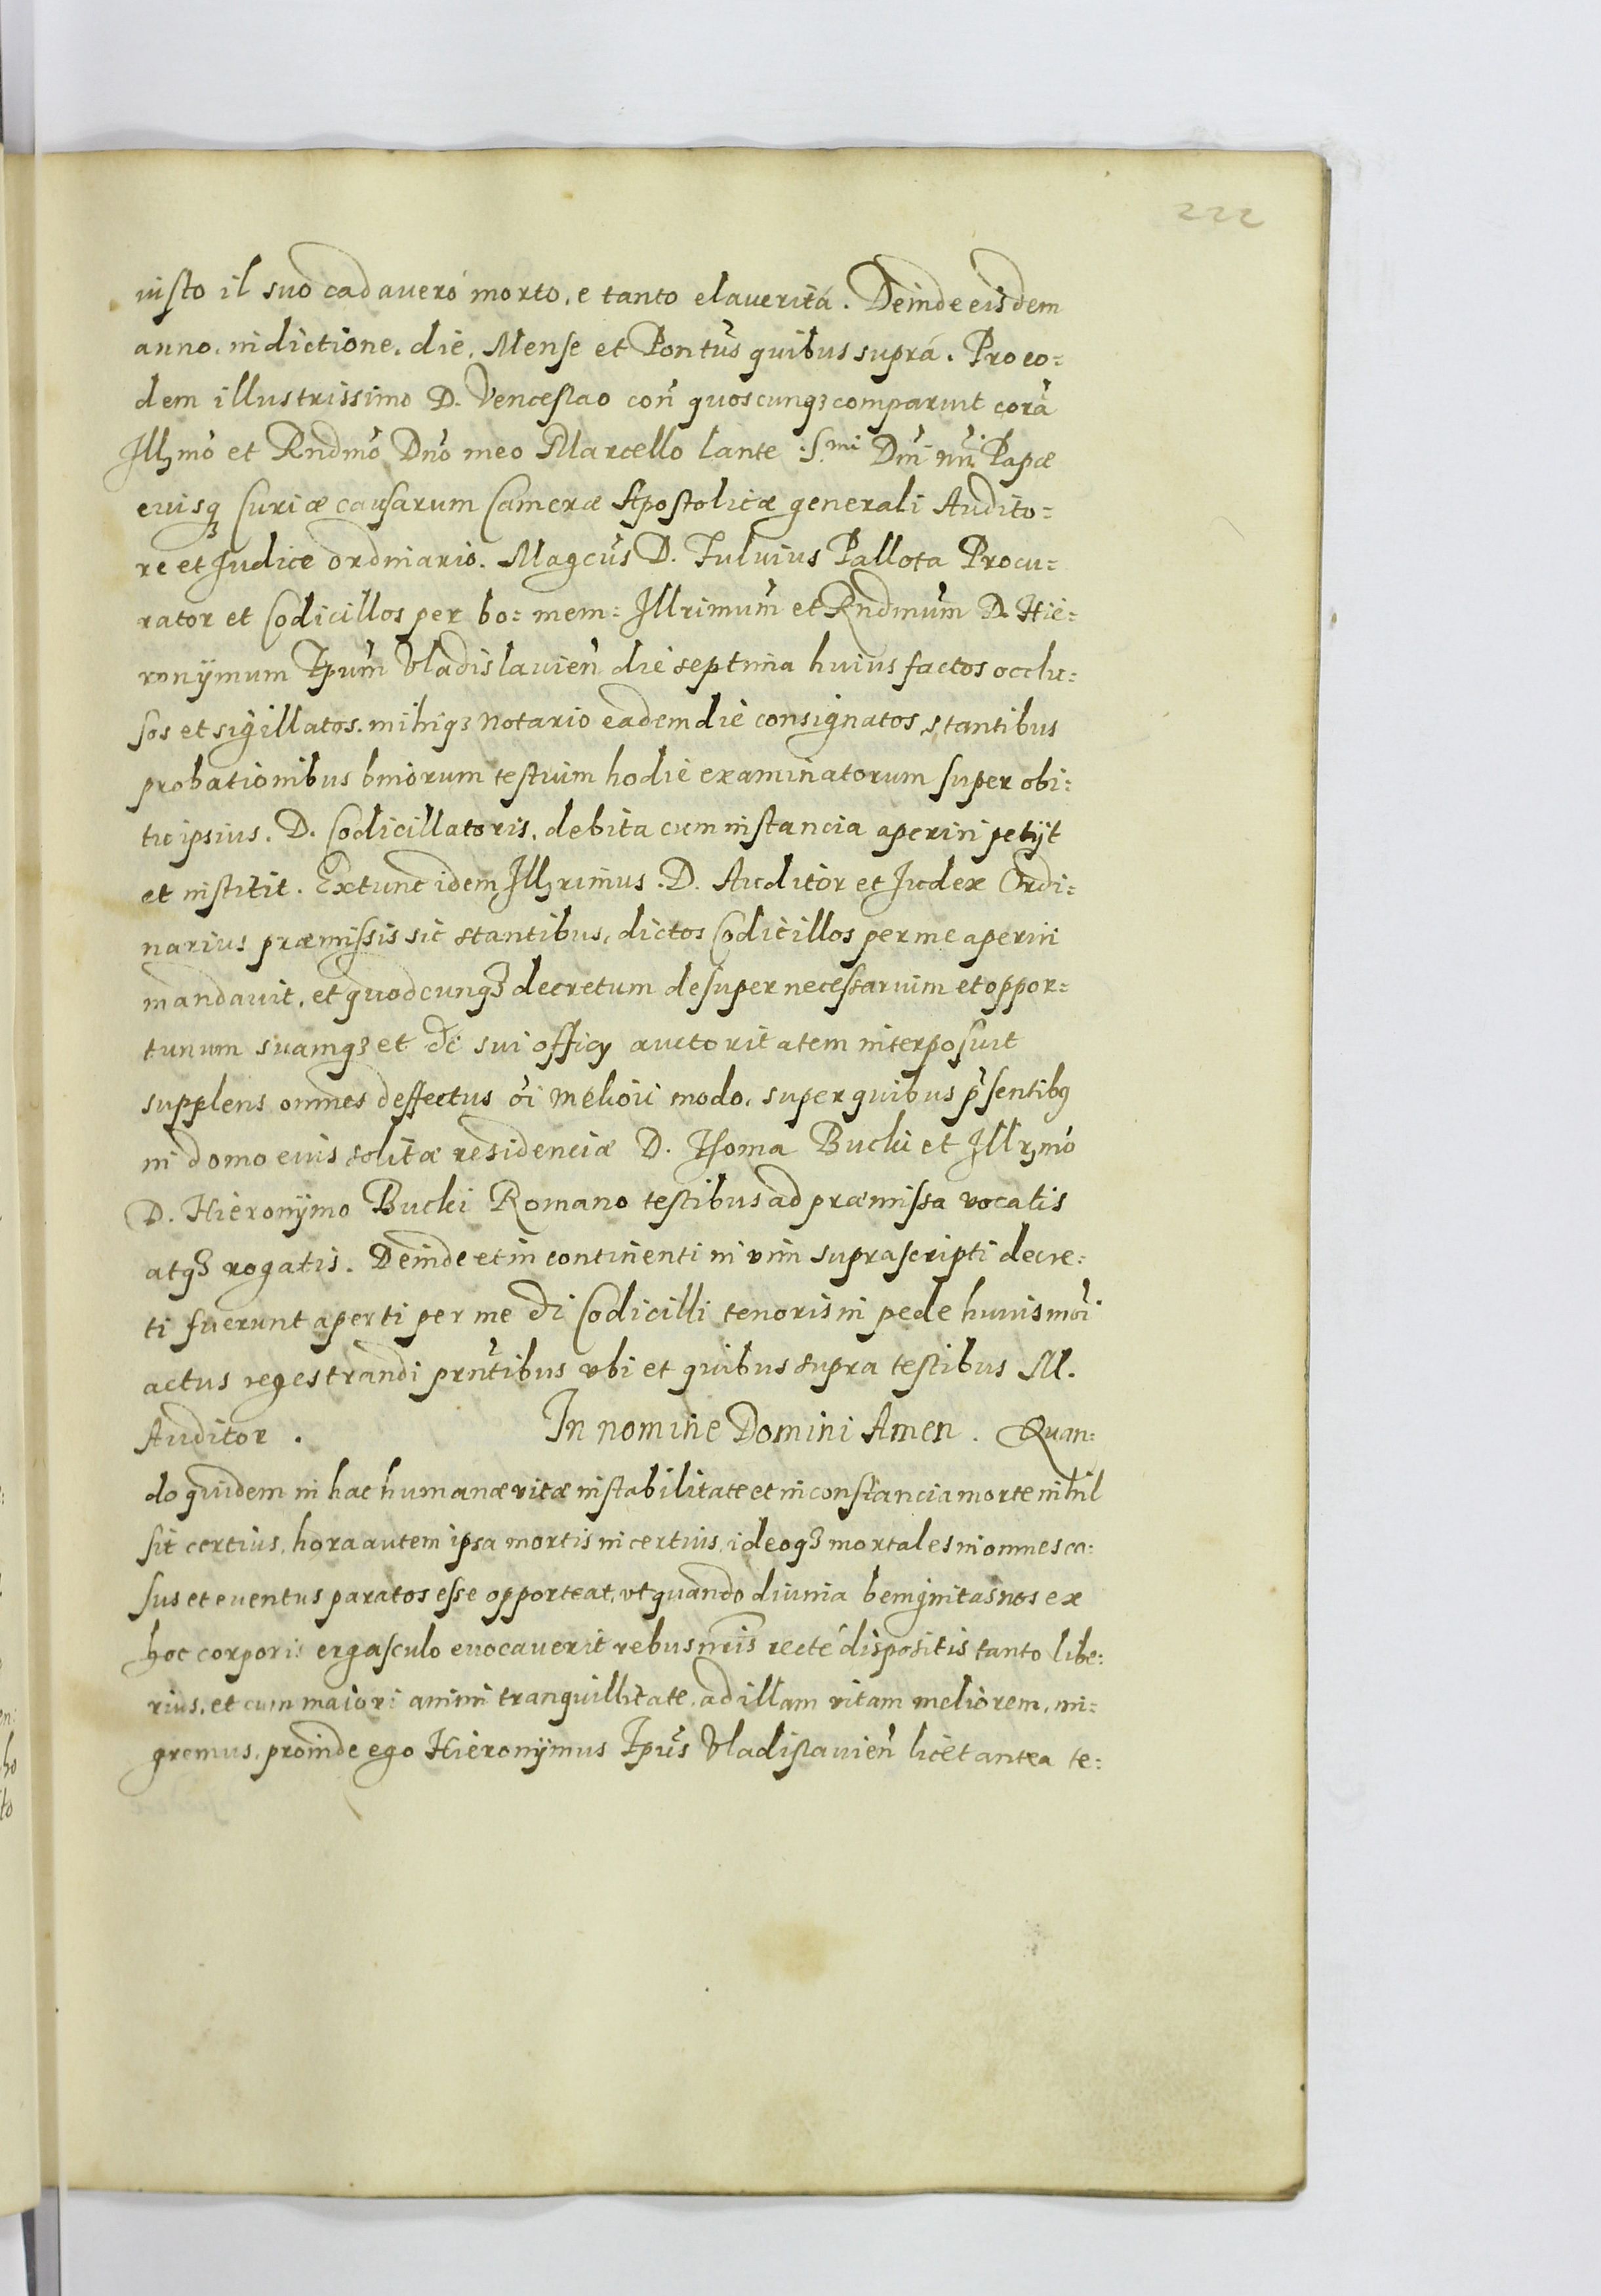 222
uisto il suo cadauero morto, e tanto elauerità. Deinde eisdem
anno, indictione, die, Mense et Pontūs quibus suprà. Pro eo=
dem illustrissimo D. Venceslao coñ quoscunqȝ comparuit corā
Illȝmo et Rndmo Dno meo Marcello Lante S.mi Dm̄ nr̄i Papæ
eiusqȝ Curiæ causarum Cameræ Apostolicæ generali Audito=
re et Judice ordinario. Magcus D. Fuluius Pallota Procu=
rator et Codicillos per bo= mem= Illrimum et Rndmum D. Hie=
ronÿmum Epum Vladislauien̄ die septima huius factos occlu=
sos et sigillatos, mihiqȝ notario eadem die consignatos, stantibus
probationibus bmorum testium hodie examinatorum super obi=
tu ipsius. D. Codicillatoris, debita cum instancia aperiri petÿt
et institit. Extunc idem Illȝrimus. D. Auditor et Judex Ordi=
narius præmissis sic stantibus, dictos Codicillos per me aperiri
mandauit, et quodcunqȝ decretum desuper necessarium et oppor=
tunum suamqȝ et di sui officÿ auctoritatem interposuit
supplens omnes deffectus oi meliori modo, super quibus p̄sentibȝ
in domo eius solitæ residenciæ D. Thoma Bucki et Illrȝmo
D. Hieronÿmo Bucki Romano testibus ad præmissa vocatis
atqȝ rogatis. Deinde et in continenti in vim suprascripti decre=
ti fuerunt aperti per me di Codicilli tenoris in pede huiusmoi
actus regestrandi prn̄tibus vbi et quibus supra testibus M.
Auditor. In nomine Domini Amen. Quan=
do quidem in hac humanæ vitæ instabilitate et inconstancia morte nihil
sit certius, hora autem ipsa mortis incertius, ideoqȝ mortales in omnes ca=
sus et euentus paratos esse opporteat, vt quando diuina benignitas nos ex
hoc corporis ergasculo euocauerit rebus nris rectè dispositis tanto libe=
rius, et cum maiori animi tranquillitate, ad illam vitam meliorem, mi=
gremus, proinde ego Hieronÿmus Epus Vladislauien̄ licet antea te=